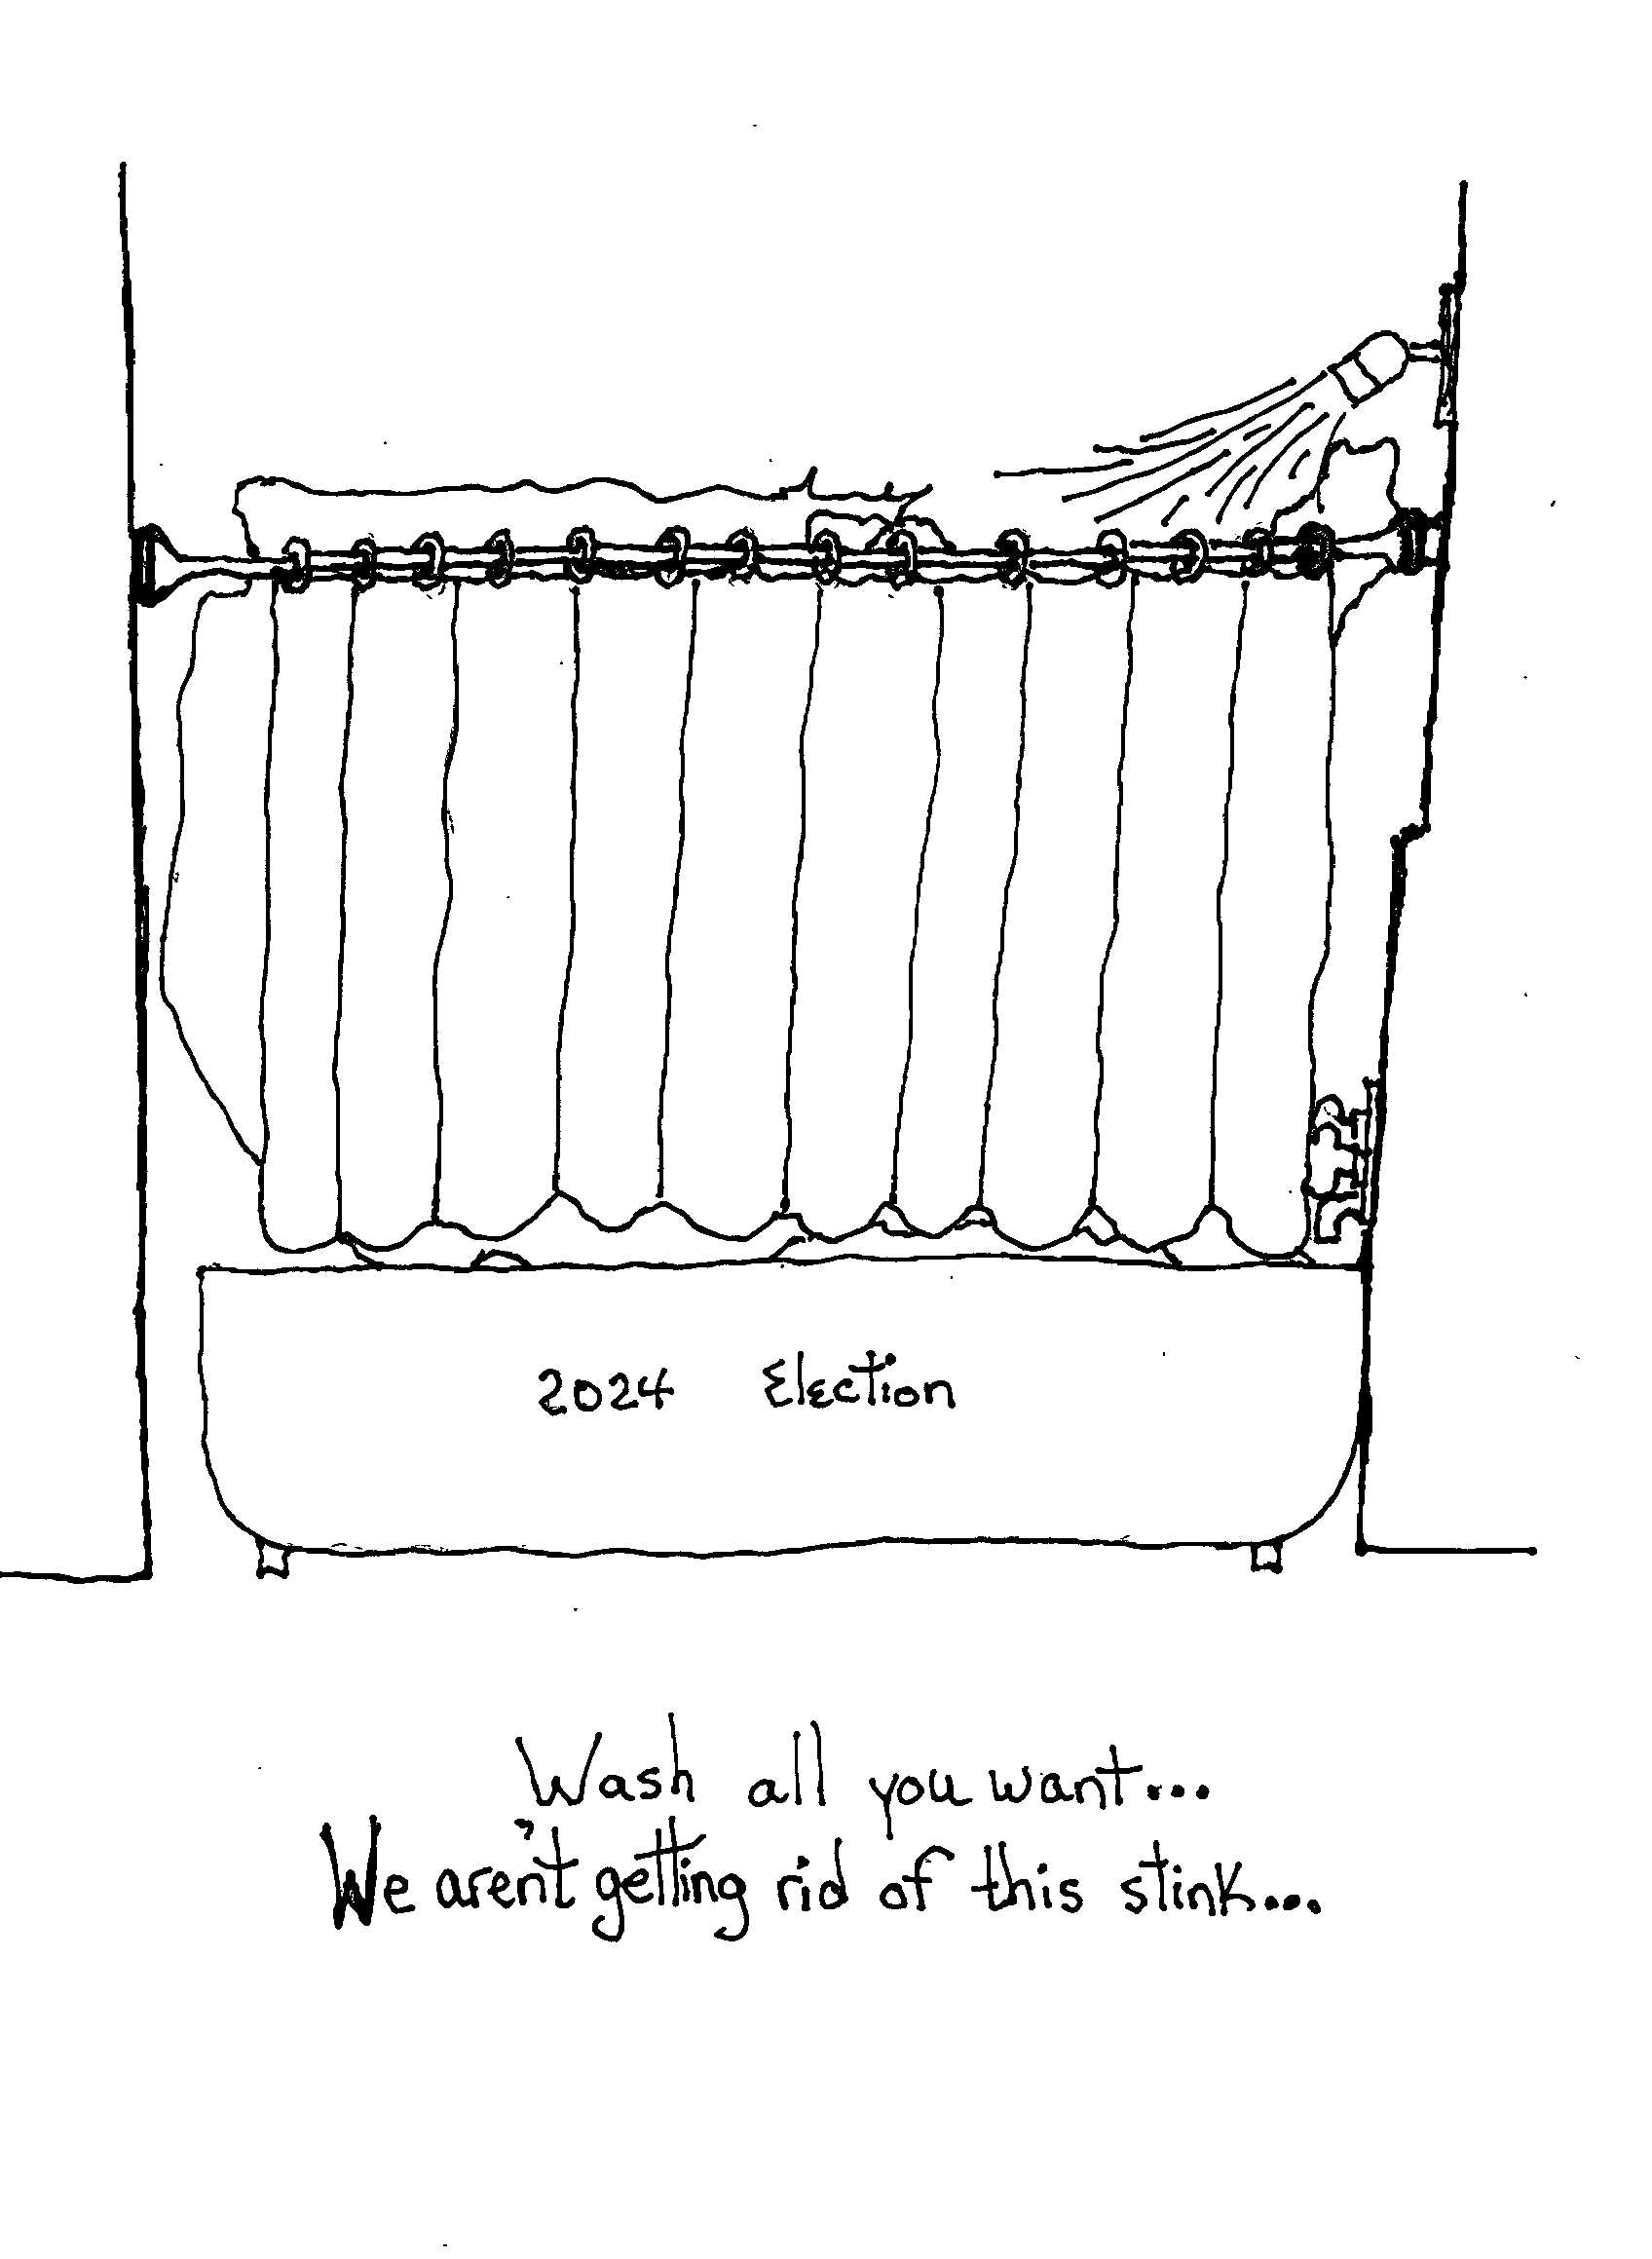 2024 Election
Wash all you want...
We aren't getting rid of this stink...